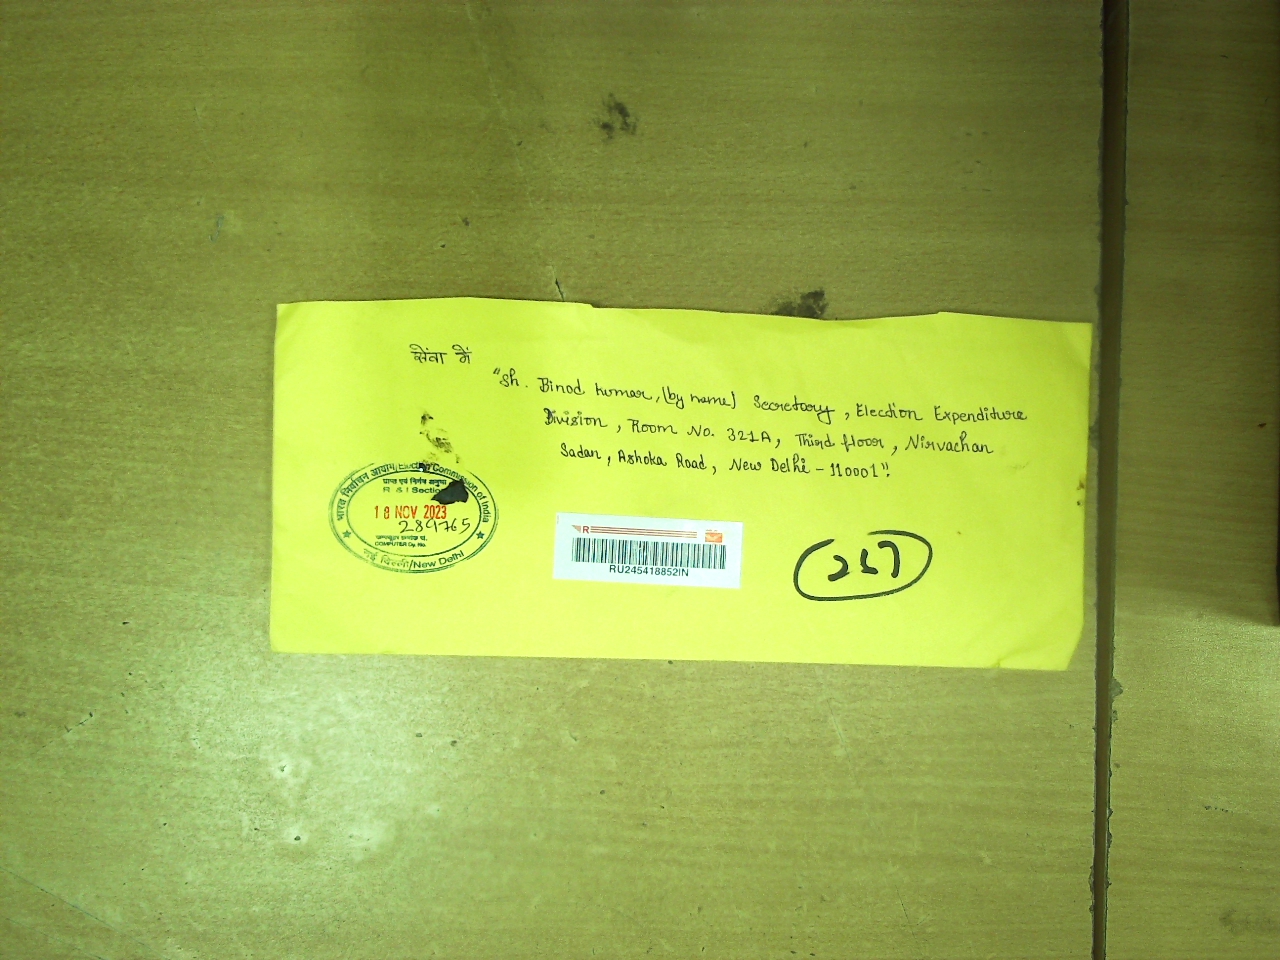 सेवा में
"Sh. Binod Kumar, (by name) Secretary, Election Expenditure
Division, Room No. 321A, Third floor, Nirvachan
Sadan, Ashoka Road, New Delhi - 110001".
भारत निर्वाचन आयोग/Election Commission of India
प्राप्त एवं निर्गम अनुभाग
R & I Section
18 NOV 2023
289765
COMPUTER Dy. No.
नई दिल्ली/New Delhi
R
RU245418852IN
257